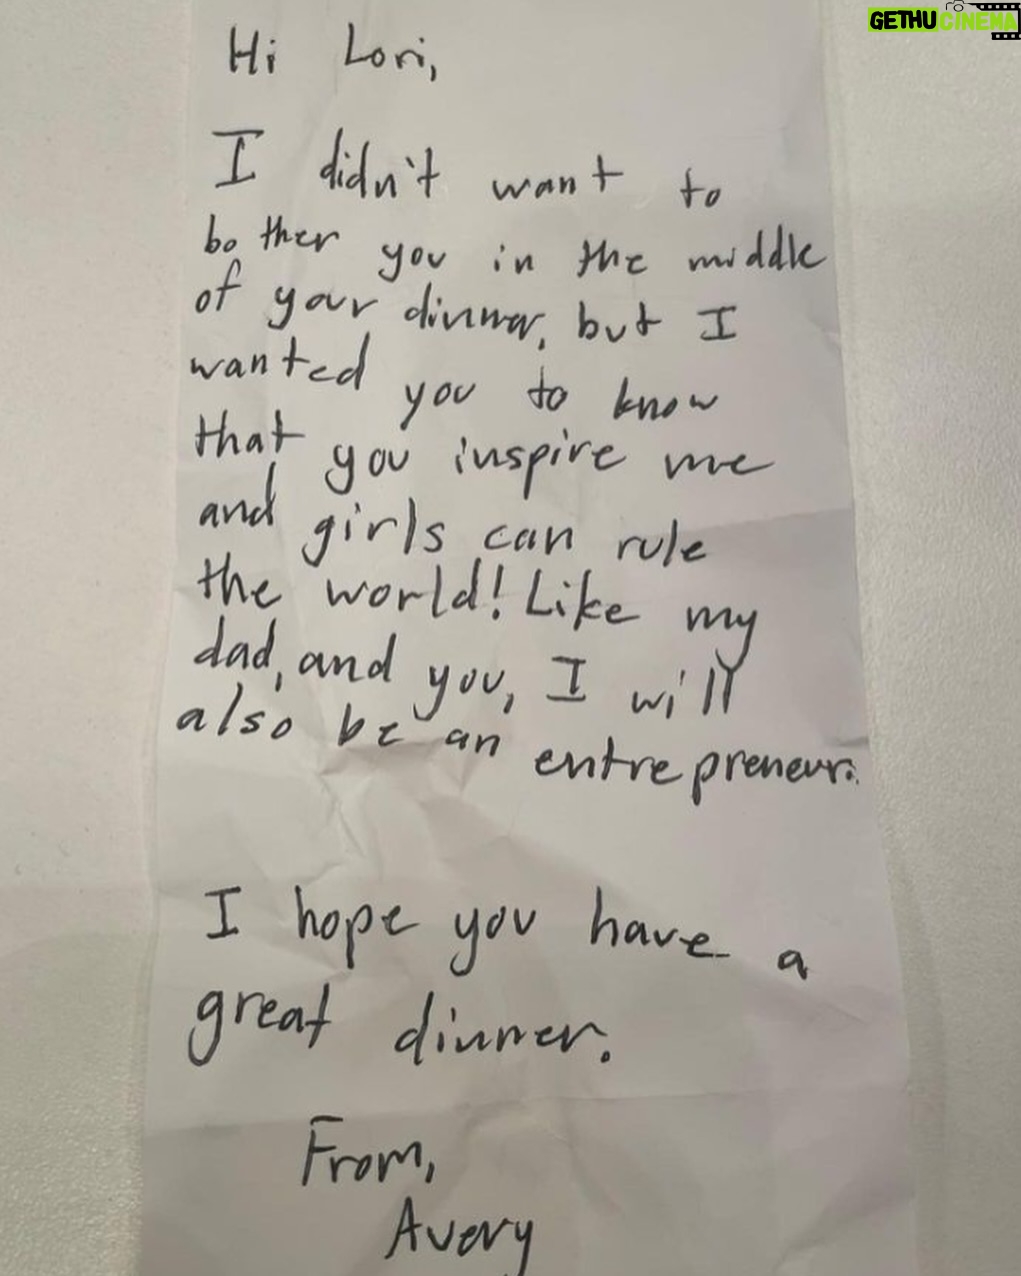 GETHUCINEMA
Hi Lori,
I didn't want to
bother you in the middle
of your dinner, but I
wanted you to know
that you inspire me
and girls can rule
the world! Like my
dad, and you, I will
also be an entrepreneur.
I hope you have a
great dinner.
From,
Avery